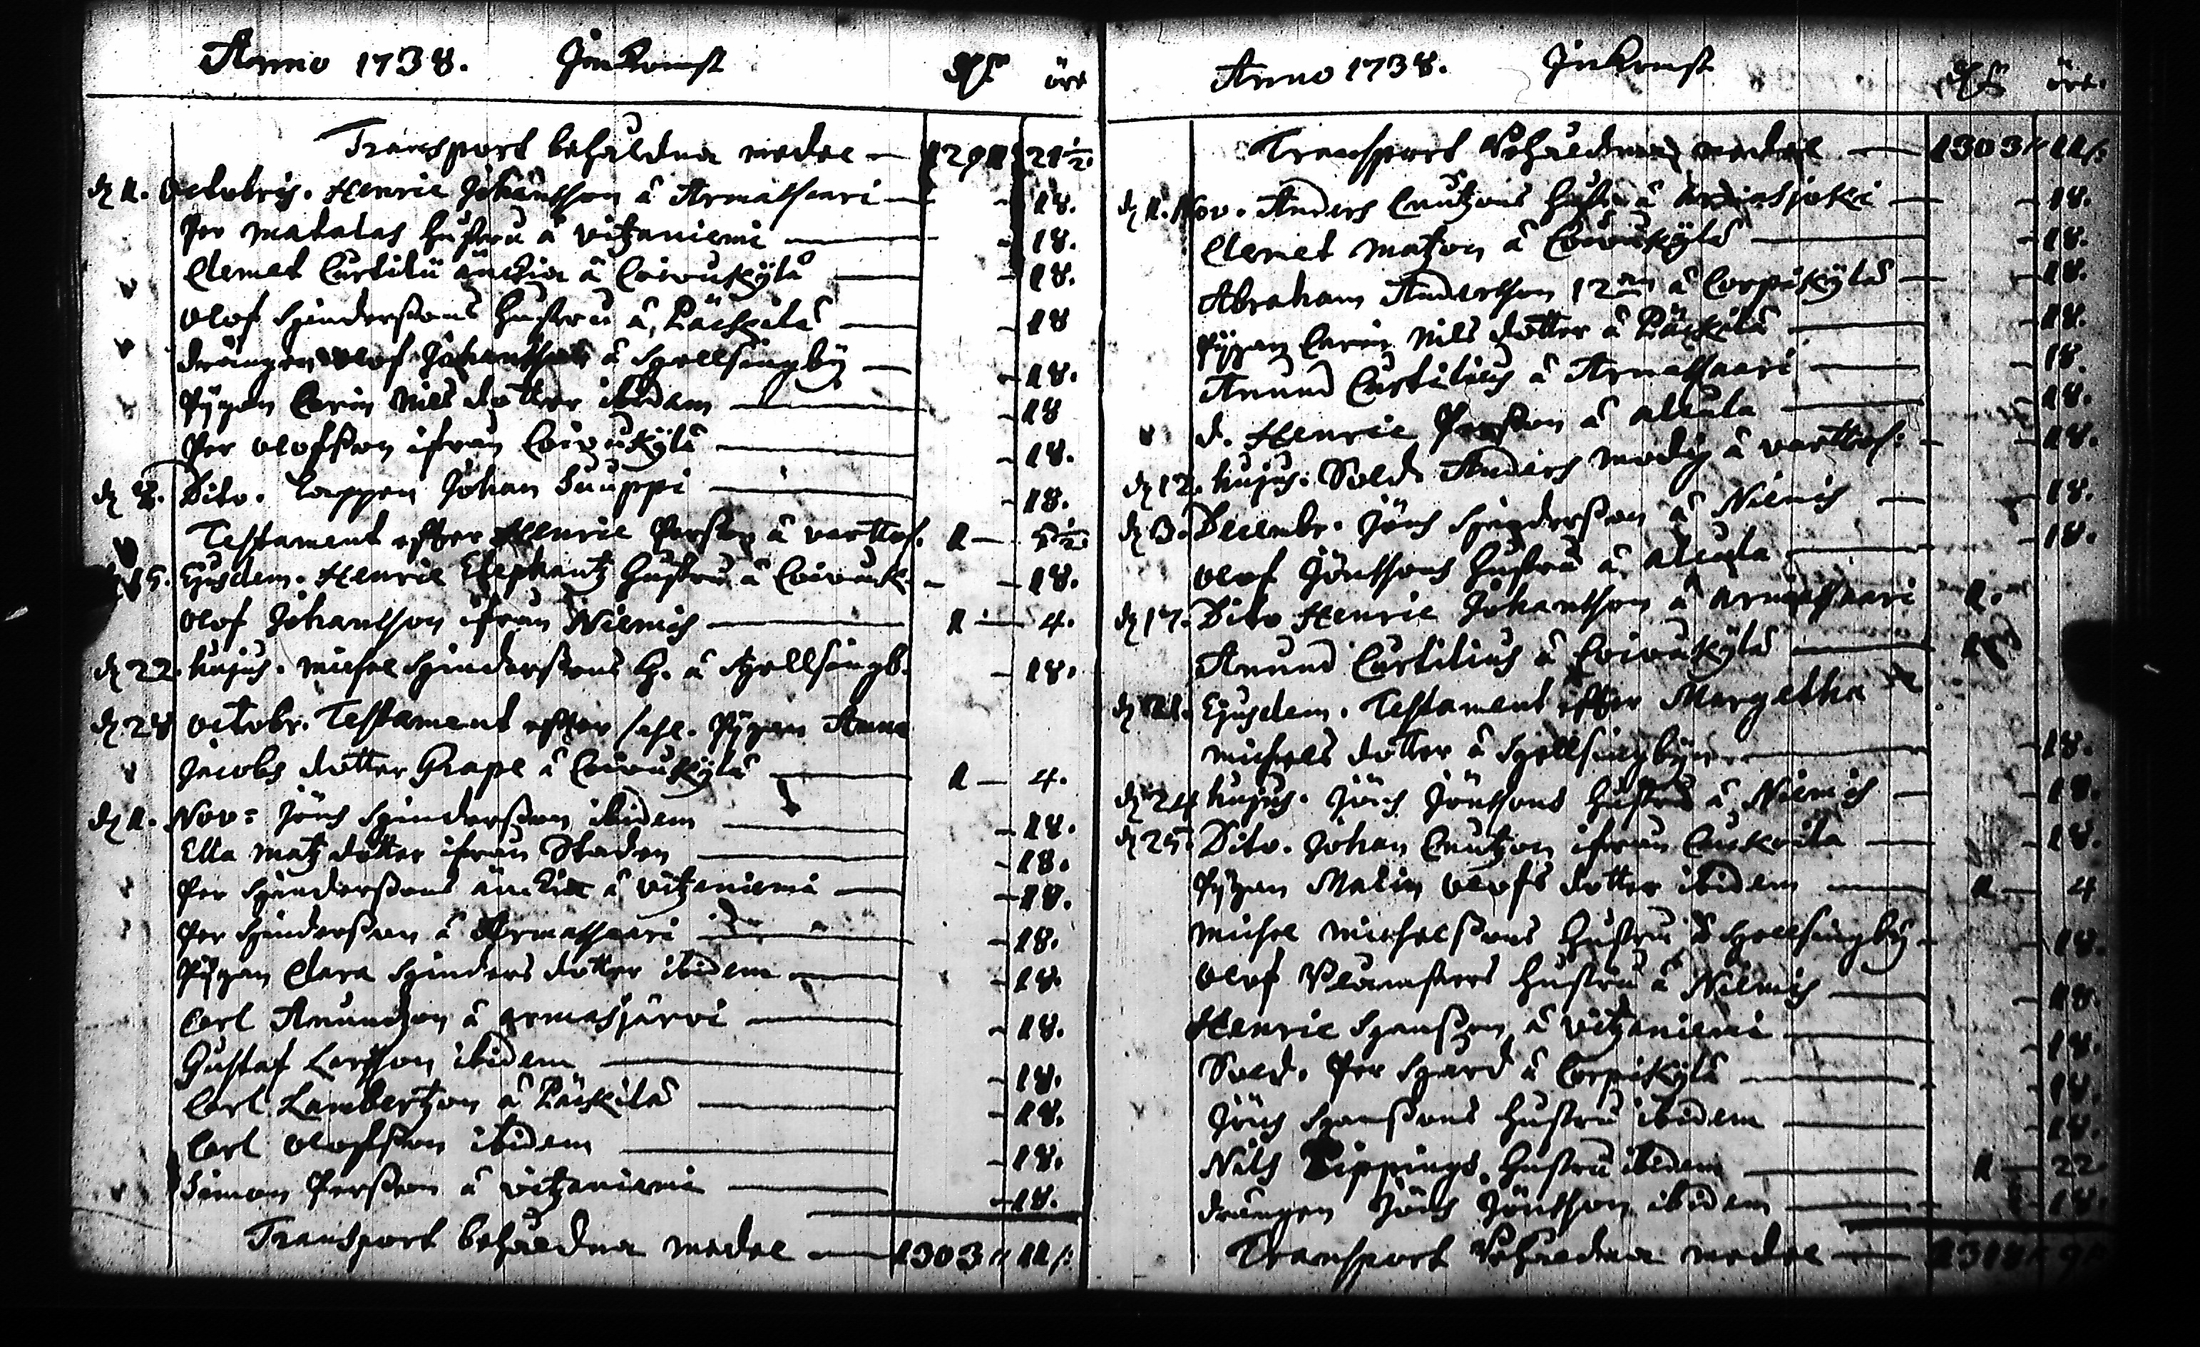 Anno 1738. Inkomst öre
Transport behåldna medel — 1291 21½
d. 1. Octobris. Henric Johansson å Armassaari — 18.
Per Matalas hustru å Vitzaniemi — 18.
Clemet Curtilii änckia å Coiwukylä — 18.
Olof Hinderssons hustru å Päckilä — 18
Drängen Olof Johansson å Hellsingby — 18.
Pigan Carin Nils dotter ibidem — 18
Per Olofsson ifrån Coiwukylä — 18.
Dito. Lappen Johan Suuppi — 18.
Testament efter Henric Persson å — 1 — 5½
Ejusdem. Henric Elephantz hustru å Coiwuk. — 18.
Olof Johansson ifrån Niemis — 1 — 4.
d. 22. hujus. Michel Hinderssons h. å Hellsingb. — 18.
d. 28 Octobr. Testament efter sahl. Pigan Anna
Jacobs dotter Grape å Coiwukylä — 1 — 4.
d. 1. Nov: Jöns Hindersson ibidem — 18.
Ella Matz dotter ifrån Staden — 18.
Per Hinderssons änckia å Vitzaniemi — 18.
Per Hindersson å Armassaari — 18.
Pigan Clara Hinders dotter ibidem — 18.
Carl Anundzon å Armasjärvi — 18.
Gustaf Larsson ibidem — 18.
Carl Lambertzon å Päckilä — 18.
Carl Olofsson ibidem — 18.
Simon Persson å Vitzaniemi — 18.
Transport behåldna medel — 1303 11
Anno 1738. Inkomst öre.
Transport Behåldna medel — 1303 11
d. 1. Nov. Anders Cnutzons hustru å — 18.
Clemet Matzon å Coiwukylä — 18.
Abraham Andersson å Corpikylä — 18.
Pigan Carin Nils dotter å Päckilä — 18.
Anund Curtilius å Armassaari — 18.
d. Henric Persson å Alcula — 18.
d. 12. hujus. Sold. Anders Modig å — 18.
d. 3. Decembr. Jöns Hindersson å Niemis — 18.
Olof Jönssons hustru å Alcula — 18.
d. 17. Dito Henric Johansson å Armassaari 1.
Anund Curtilius å Coiwukylä —
d. 21. Ejusdem. Testament efter Margetha
Michels dotter å Hellsingbyn — 18.
d. 24 hujus. Jöns Jönssons hustru å Niemis — 18.
d. 25. Dito. Johan Cnutzon ifrån — 18.
Pigan Malin Olofs dotter ibidem — 1 — 4
Michel Michelssons hustru å Hellsingby — 18.
Olof hustru å Niemis — 18.
Henric Hansson å Vitzaniemi — 18.
Sold. Per Hård å Corpikylä — 18.
Jöns Hanssons hustru ibidem — 18.
Nils Pippings hustru ibidem — 1 — 22
Drängen Jöns Jönsson ibidem — 18.
Transport Behåldna medel — 1318 9